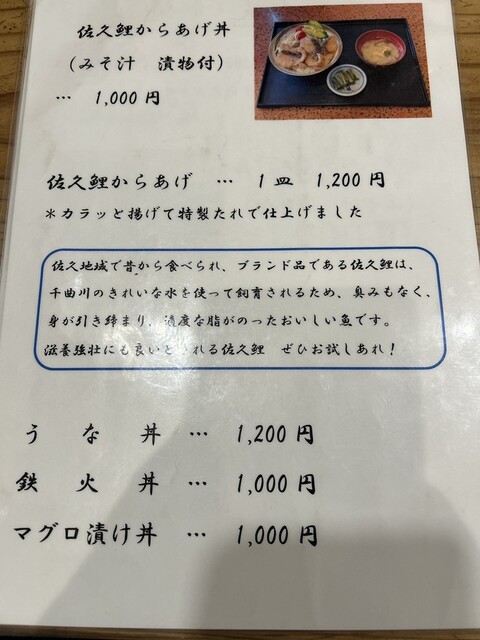 佐久鯉からあげ丼
(みそ汁 漬物付)
… 1,000円
佐久鯉からあげ … 1皿 1,200円
*カラッと揚げて特製たれで仕上げました
佐久地域で昔から食べられ、ブランド品である佐久鯉は、
千曲川のきれいな水を使って飼育されるため、臭みもなく、
身が引き締まり、適度な脂がのったおいしい魚です。
滋養強壮にも良いとされる佐久鯉 ぜひお試しあれ!
うな丼 … 1,200円
鉄火丼 … 1,000円
マグロ漬け丼 … 1,000円